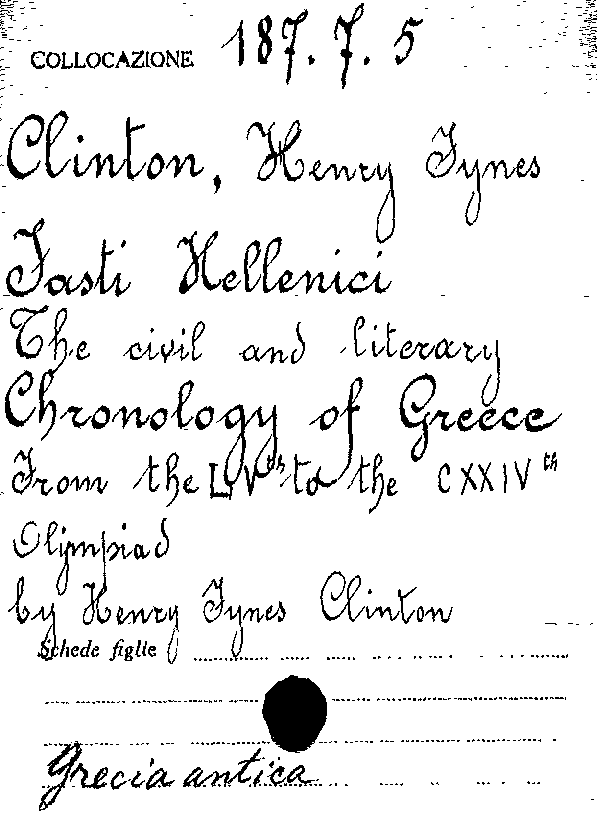 COLLOCAZIONE 187.7.5
Clinton, Henry Fynes
Fasti Hellenici
The civil and literary
Chronology of Greece
From the LVth to the CXXIVth
Olympiad
by Henry Fynes Clinton
Schede figlie
Grecia antica